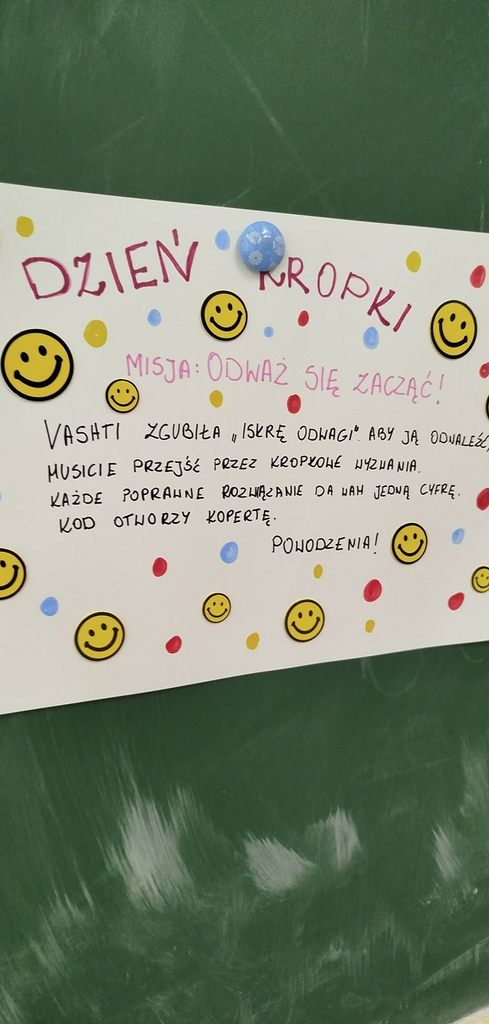 DZIEŃ KROPKI
MISJA: ODWAŻ SIĘ ZACZĄĆ!
VASHTI ZGUBIŁA „ISKRĘ ODWAGI". ABY JĄ ODNALEŚĆ,
MUSICIE PRZEJŚĆ PRZEZ KROPKOWE WYZWANIA.
KAŻDE POPRAWNE ROZWIĄZANIE DA WAM JEDNĄ CYFRĘ.
KOD OTWORZY KOPERTĘ.
POWODZENIA!